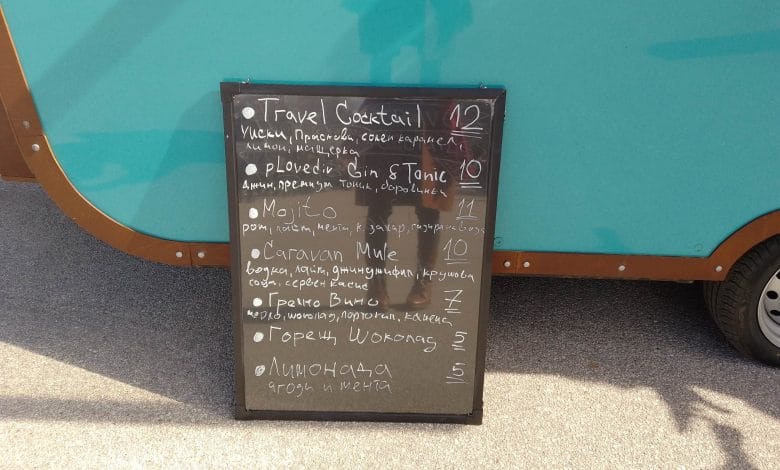 • Travel Cocktail 12
уиски, Праскови, солен карамел,
лимон, мащерка
• pLovediv Gin & Tonic 10
джин, премиум тоник, боровинки
• Mojito 11
ром, лайм, мента, к. захар, газирана вода
• Caravan Mule 10
водка, лайм, джинджифил, крушова
сода, сервен касис
• Гречно Вино 7
шоколад, портокал, канела
• Горещ Шоколад 5
• Лимонада 5
ягоди и мента